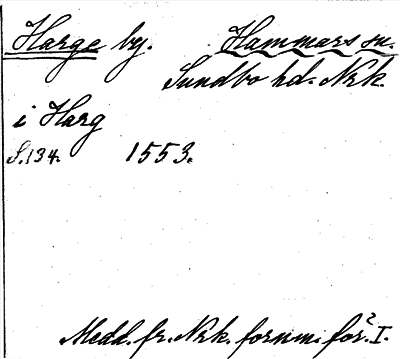 Harge by. Hammars sn.
Sundbo hd. Nrk.
i Harg
S.134. 1553.
Medd. fr. Nrk. fornm. för. I.